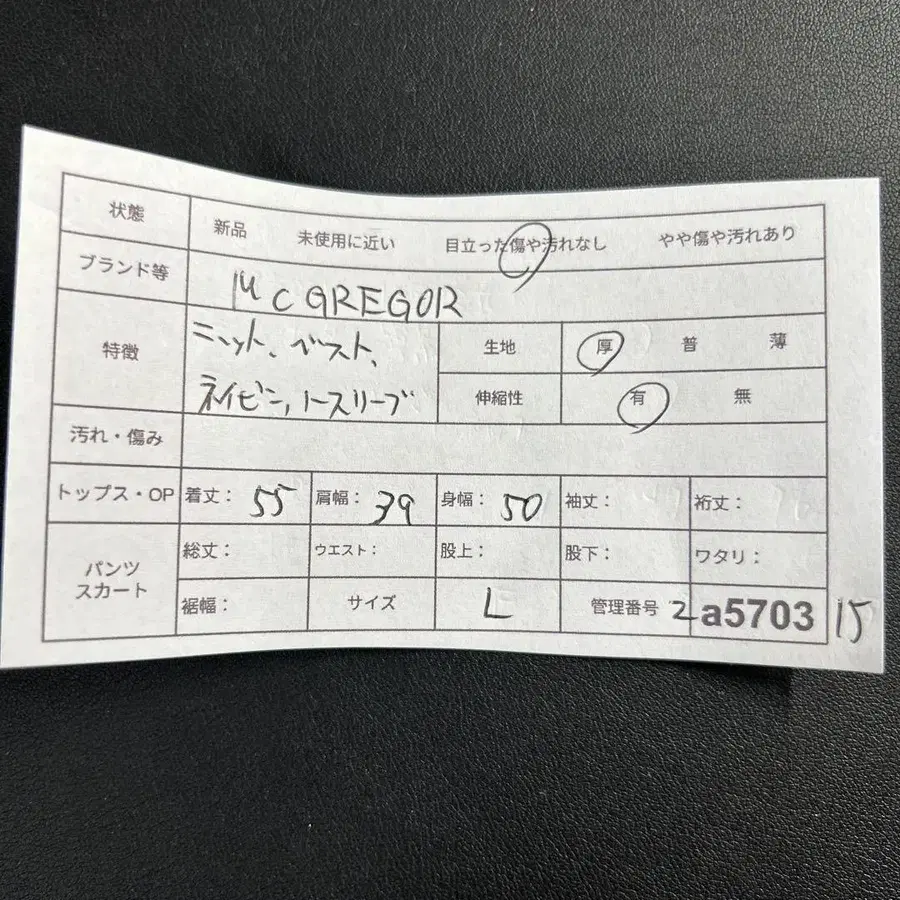 状態 新品 未使用に近い 目立った傷や汚れなし やや傷や汚れあり
ブランド等 Mc GREGOR
特徴 ニット、ベスト、
ネイビー、ノースリーブ
生地 厚 普 薄
伸縮性 有 無
汚れ・傷み
トップス・OP 着丈: 55 肩幅: 39 身幅: 50 袖丈: 裄丈:
パンツ
スカート
総丈: ウエスト: 股上: 股下: ワタリ:
裾幅: サイズ L 管理番号 2 a5703 15